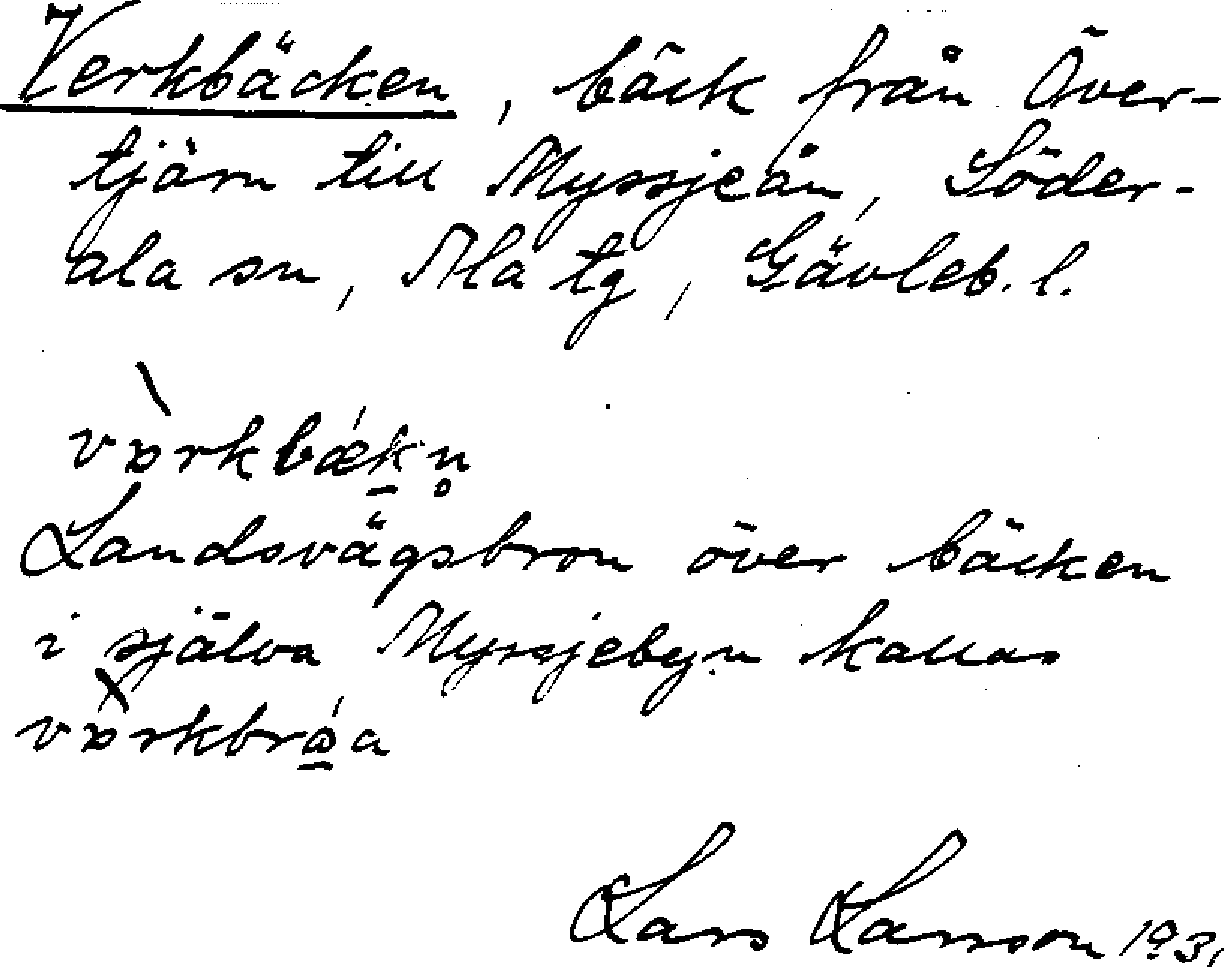 Verkbäcken, bäck från Över-
tjärn till Myssjeån, Söder-
ala sn, Ala tg, Gävleb. l.
Landsvägsbron över bäcken
i själva Myssjebyn kallas
Lars Larsson 1931